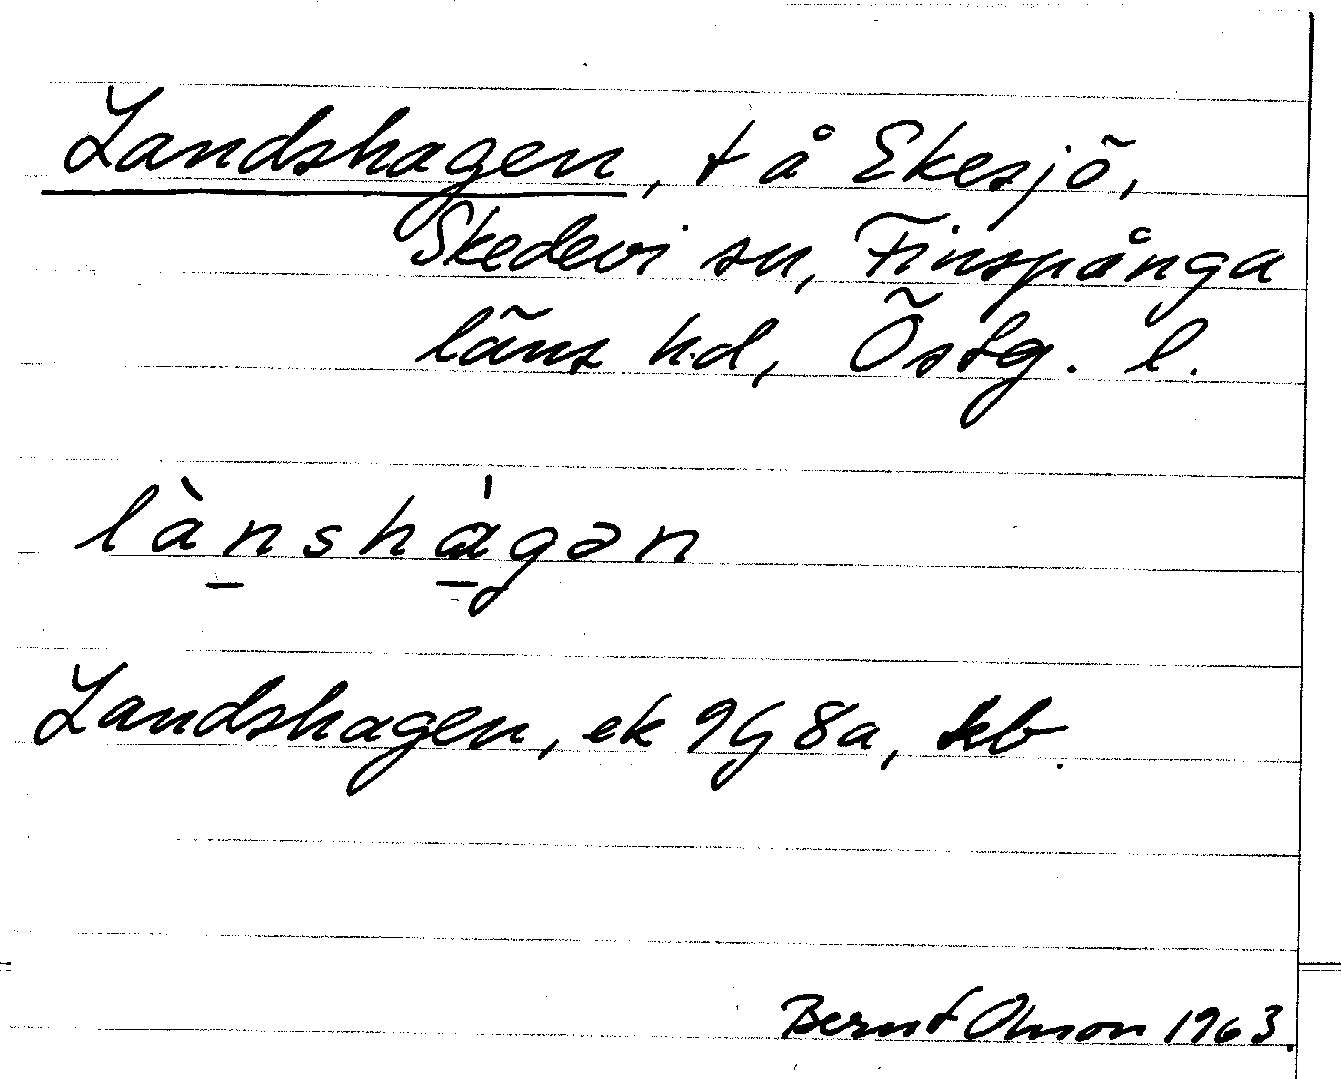 Landshagen, t å Ekesjö,
Skedevi sn, Finspånga
läns hd, Östg. l.
lànshàgən
Landshagen, ek 9G 8a, kb.
Bernt Olsson 1963.